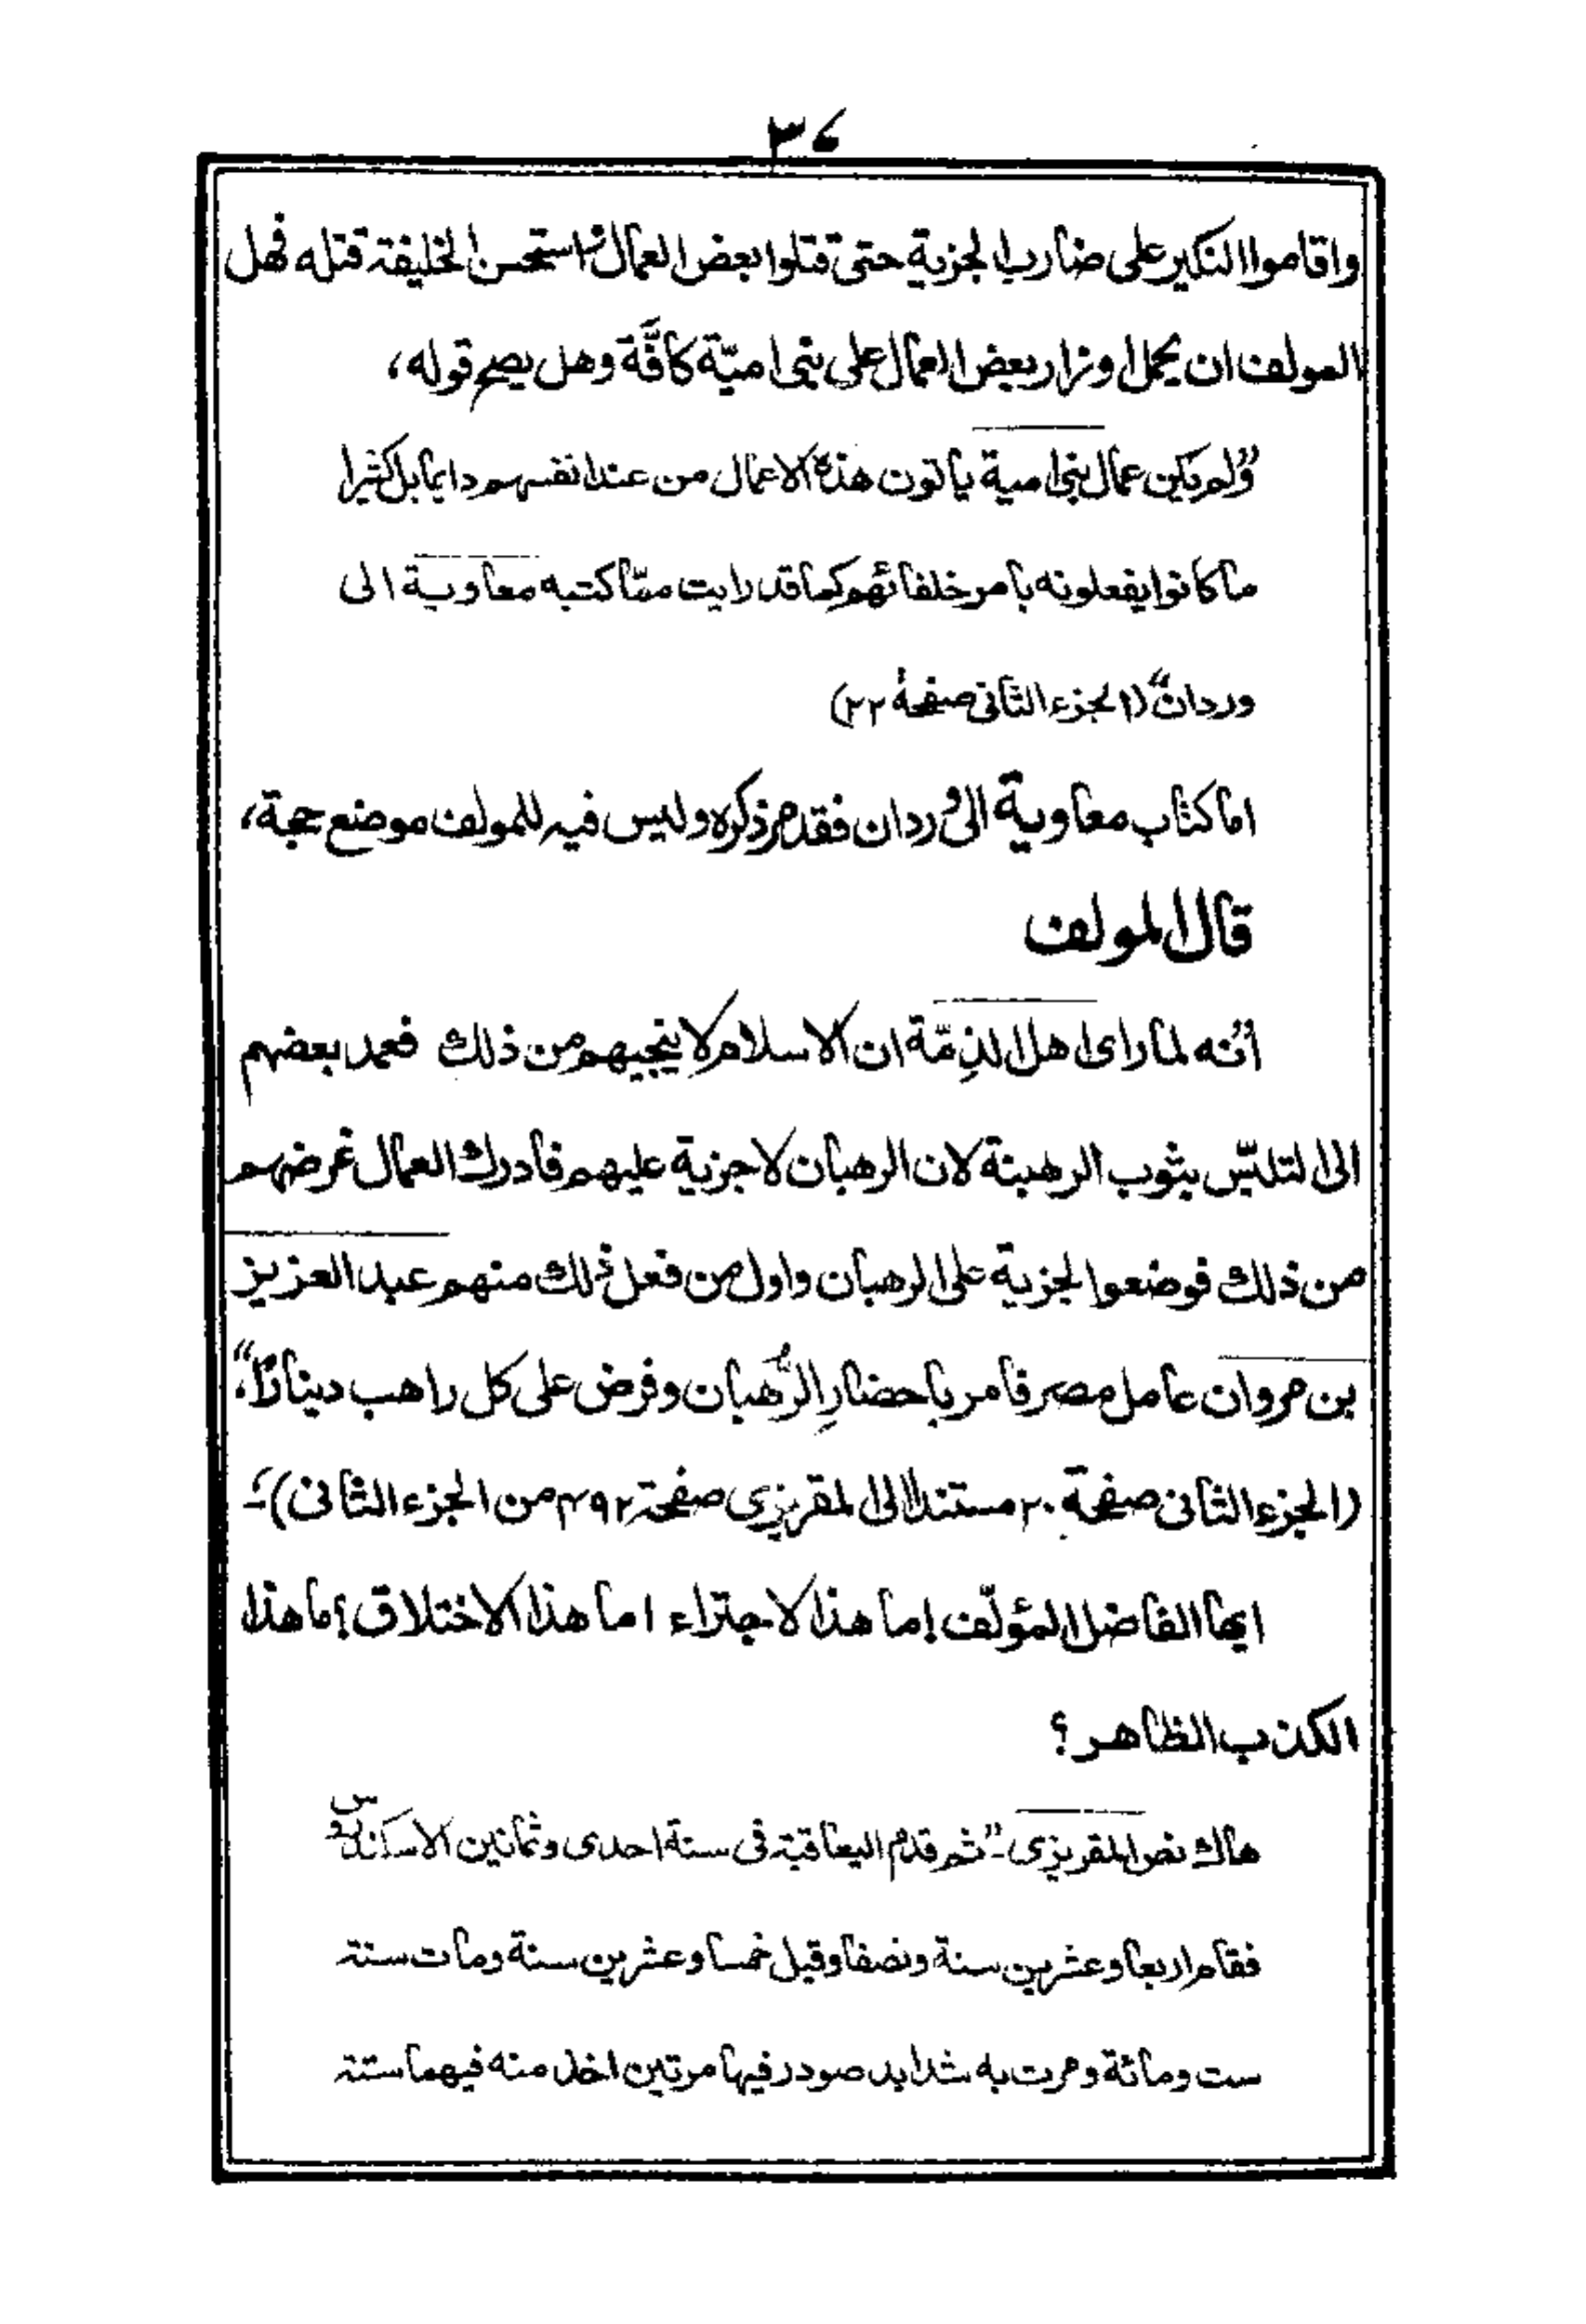 ٣٤
واقاموا النكير على ضارب الجزية حتى قتلوا بعض العمال واستحسن الخليفة قتله فهل
المولف ان يحمل اوزار بعض العمال على بنى اميّة كافَّة وهل يصح قوله،
"ولم يكن عمال بنى امية ياتون هذه الاعمال من عند انفسهم دايما بل كثيرا
ما كانوا يفعلونه بامر خلفائهم كما قد رايت ممّا كتبه معاوية الى
وردان" (الجزء الثانى صفحة ٢٢)
اما كتاب معاوية الى وردان فقد مر ذكره وليس فيه للمولف موضع حجة،
قال المولف
"انه لما راى اهل الذِمّة ان الاسلام لا ينجيهم من ذلك فعمد بعضهم
الى التلبّس بثوب الرهبنة لان الرهبان لا جزية عليهم فادرك العمال غرضهم
من ذلك فوضعوا الجزية على الرهبان واول من فعل ذلك منهم عبد العزيز
بن مروان عامل مصر فامر باحضارِ الرُّهبان وفرض على كل راهب دينارًا"،
(الجزء الثانى صفحة ٢٠ مستندا الى المقريزى صفحة ٤٩٢ من الجزء الثانى)؛-
ايها الفاضل المؤلّف! ما هذا الاجتراء! ما هذا الاختلاق! ما هذا
الكذب الظاهر؟
هاك نص المقريزى- "ثم قدم اليعاقبة فى سنة احدى وثمانين الاسكندروس
فقام اربعا وعشرين سنة ونصفا وقيل خمسا وعشرين سنة ومات سنة
ست ومائة ومرت به شدايد صودر فيها مرتين اخذ منه فيهما ستة